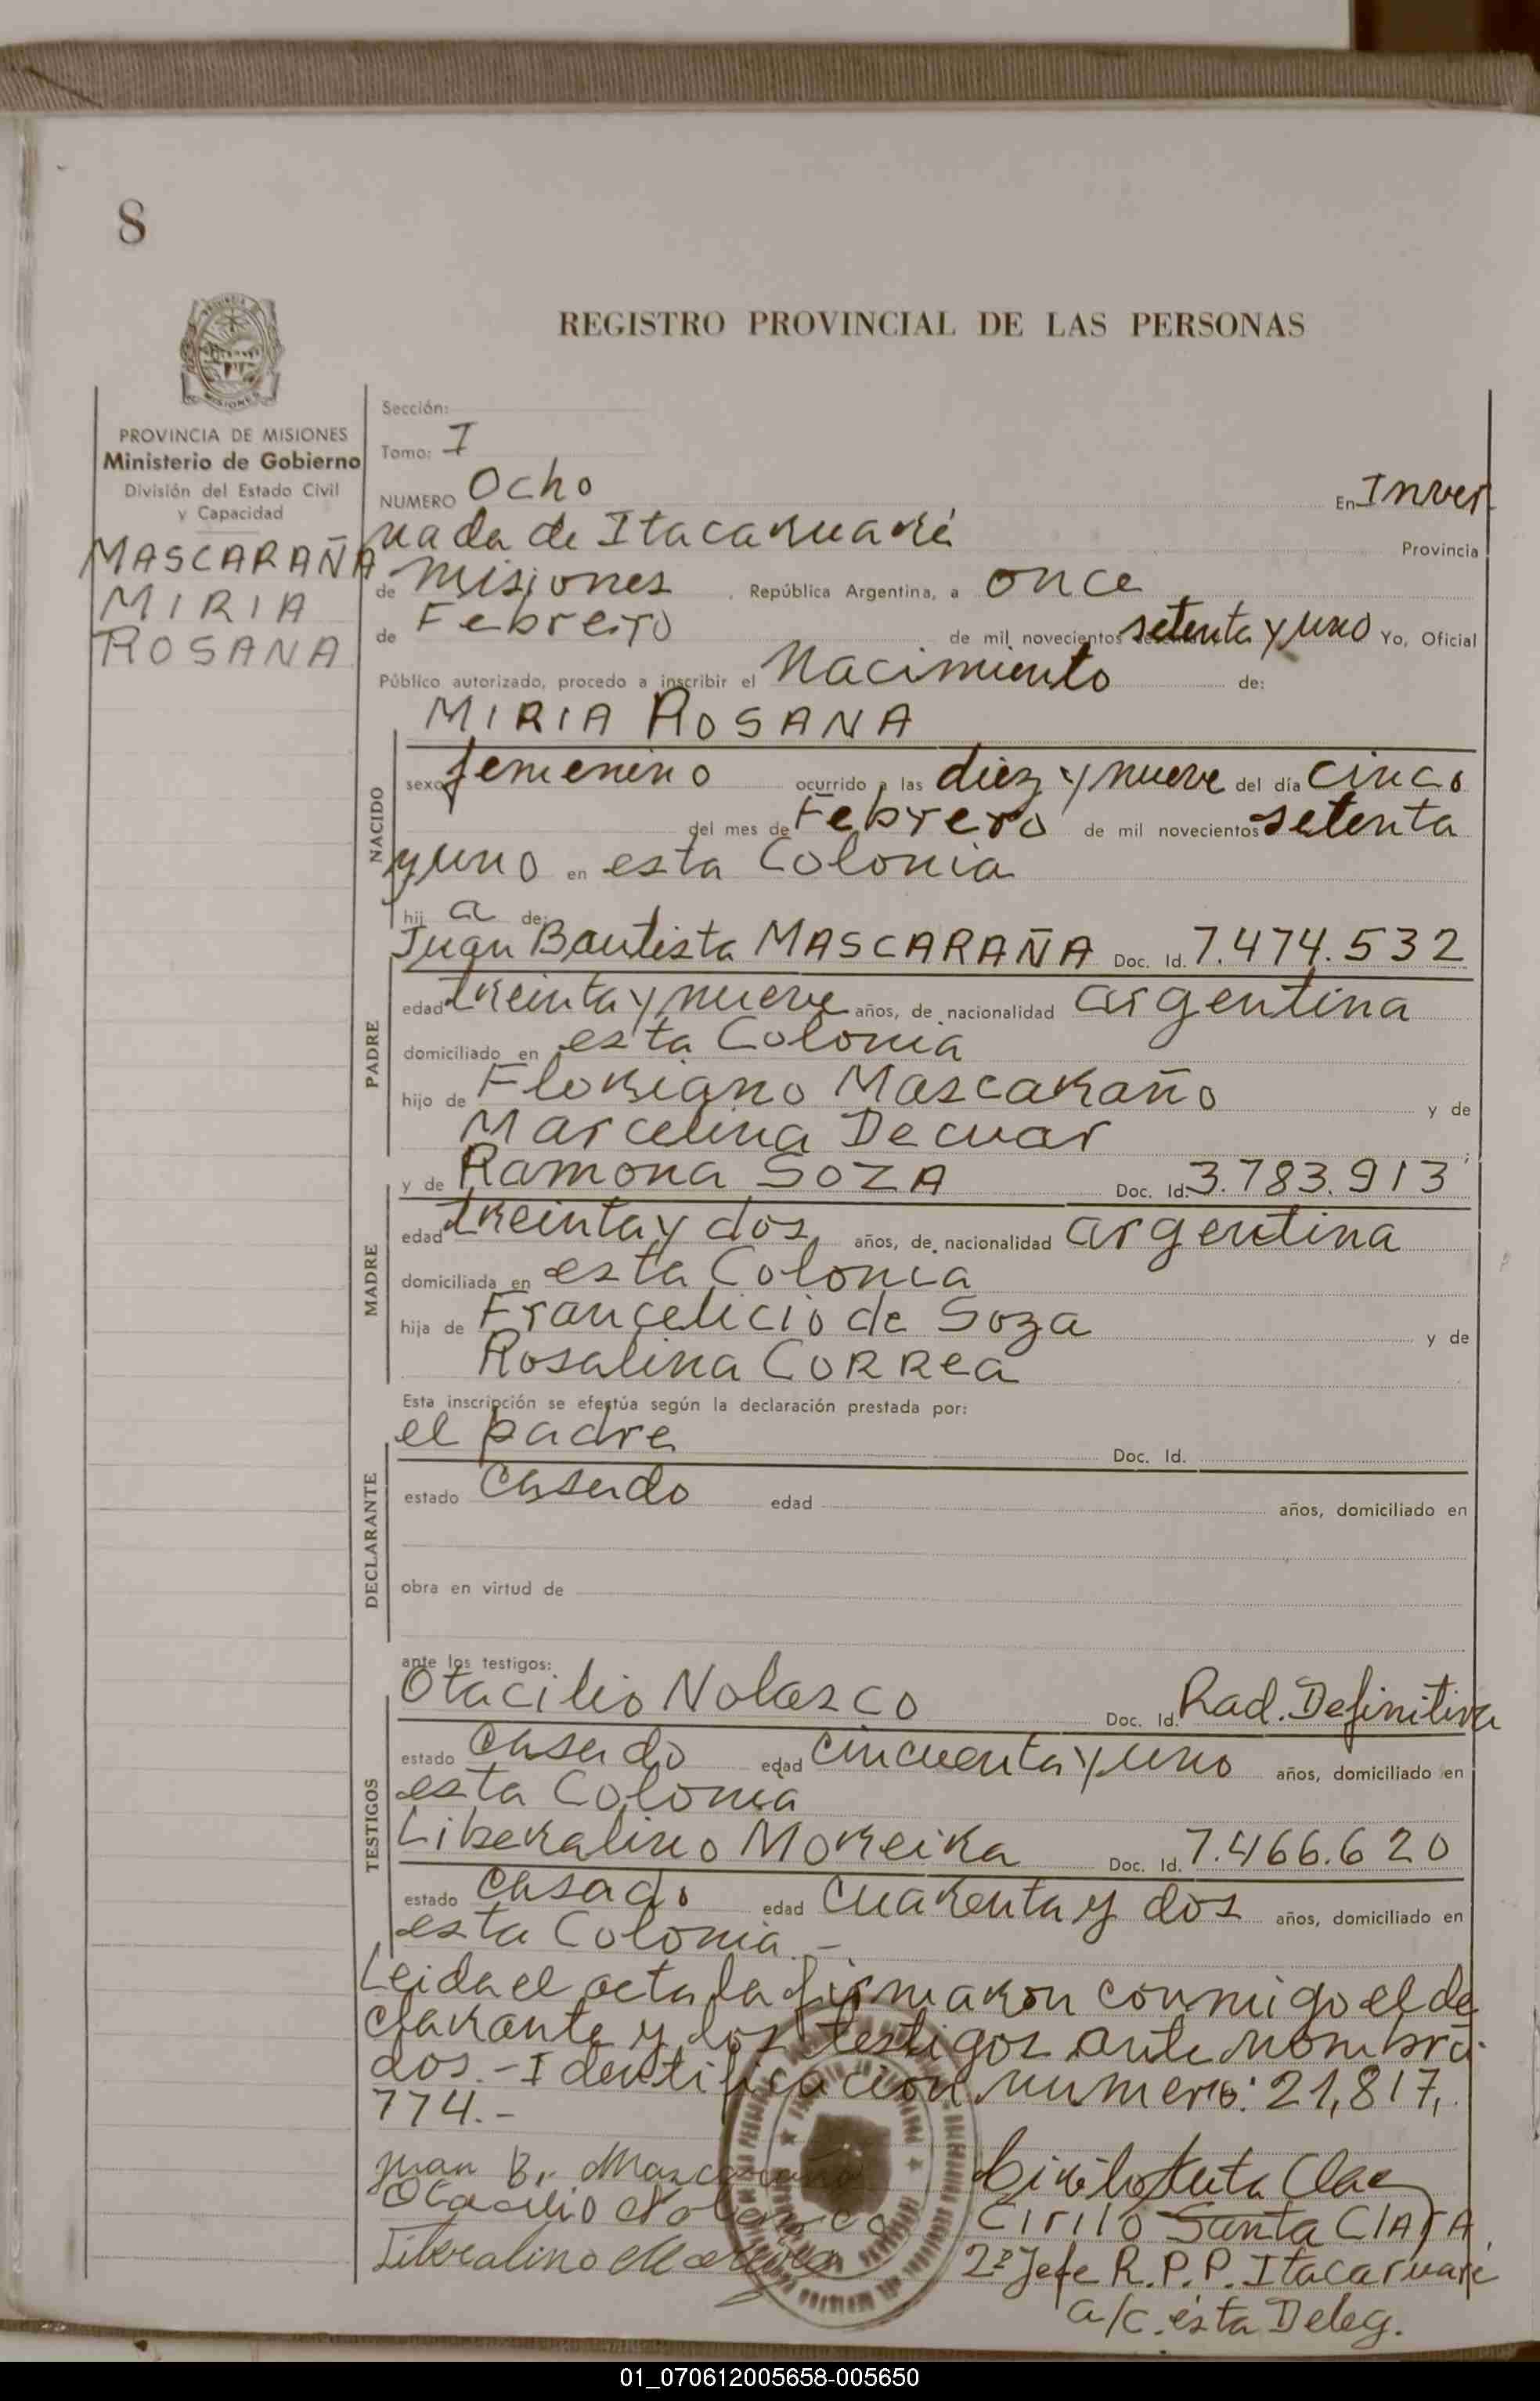 8
REGISTRO PROVINCIAL DE LAS PERSONAS
PROVINCIA DE MISIONES
Ministerio de Gobierno
División del Estado Civil
y Capacidad
MASCARAÑA
MIRIA
ROSANA
Sección:
Tomo: I
NUMERO Ocho En Inver
nada de Itacaruaré Provincia
de Misiones, República Argentina, a once
de Febrero de mil novecientos setenta y uno Yo, Oficial
Público autorizado, procedo a inscribir el Nacimiento de:
MIRIA ROSANA
NACIDO
sexo femenino ocurrido a las diez y nueve del día cinco
del mes de Febrero de mil novecientos setenta
y uno en esta Colonia
hij a de:
Juan Bautista MASCARAÑA Doc. Id. 7.474.532
PADRE
edad treinta y nueve años, de nacionalidad argentina
domiciliado en esta Colonia
hijo de Floriano Mascaraño y de
Marcelina Decuar
y de Ramona SOZA Doc. Id. 3.783.913
MADRE
edad treinta y dos años, de nacionalidad argentina
domiciliada en esta Colonia
hija de Francelicio de Soza y de
Rosalina CORREa
Esta inscripción se efectúa según la declaración prestada por:
el padre Doc. Id.
DECLARANTE
estado casado edad años, domiciliado en
obra en virtud de
ante los testigos:
Otacilio Nolasco Doc. Id. Rad. Definitiva
TESTIGOS
estado casado edad cincuenta y uno años, domiciliado en
esta Colonia
Liberalino Moreira Doc. Id. 7.466.620
estado casado edad cuarenta y dos años, domiciliado en
esta Colonia.-
Leida el acta la firmaron conmigo el de
clarante y los testigos ante nombra
dos.- Identificacion numero: 21,817,
774.-
Juan B. Mascaraña
Otacilio Nolasco
Liberalino
Cirilo Santa Clara
Cirilo Santa ClaRA
2º Jefe R.P.P. Itacaruaré
a/c. ésta Deleg.
01_070612005658-005650